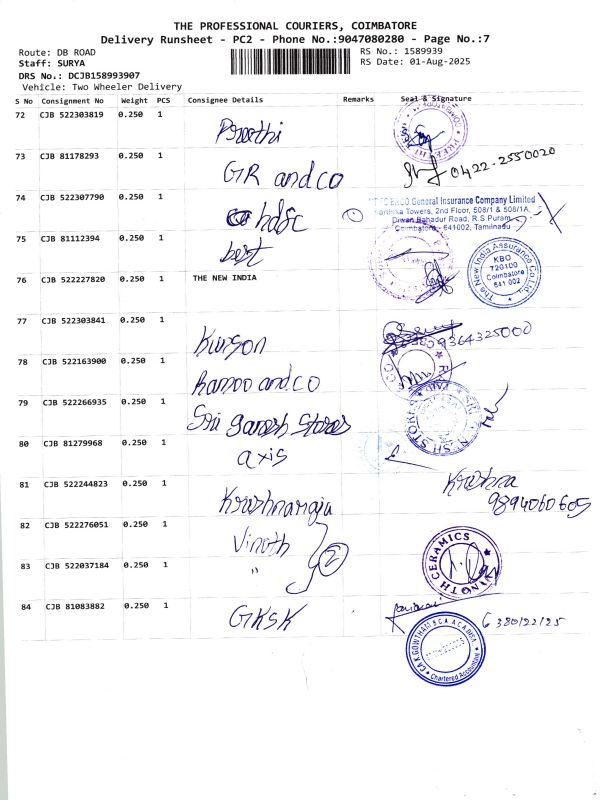 THE PROFESSIONAL COURIERS, COIMBATORE
Delivery Runsheet - PC2 - Phone No.:9047080280 - Page No.:7
Route: DB ROAD
RS No.: 1589939
Staff: SURYA
RS Date: 01-Aug-2025
DRS No.: DCJB158993907
Vehicle: Two Wheeler Delivery
S No Consignment No Weight PCS Consignee Details Remarks Seal & Signature
72 CJB 522303819 0.250 1 Preethi
73 CJB 81178293 0.250 1 GR and co 0422-2550020
74 CJB 522307790 0.250 1 hdfc
General Insurance Company Limited
Towers, 2nd Floor, 508/1 & 508/1A,
Diwan Bahadur Road, R.S.Puram,
Coimbatore - 641002, Tamilnadu
75 CJB 81112394 0.250 1 best
76 CJB 522227820 0.250 1 THE NEW INDIA
The New India Assurance Co. Ltd.
KBO
720100
Coimbatore
641 002
77 CJB 522303841 0.250 1 Kurson 9364325000
78 CJB 522163900 0.250 1 Ramoo and co
79 CJB 522266935 0.250 1 Sri ganesh Stores
80 CJB 81279968 0.250 1 axis
81 CJB 522244823 0.250 1 Krishnaraju Krishna
9894060605
82 CJB 522276051 0.250 1 Vinoth 2
83 CJB 522037184 0.250 1 "
VINOTH CERAMICS
84 CJB 81083882 0.250 1 GKSK
CA K.GOWTHAM
Chartered Accountant